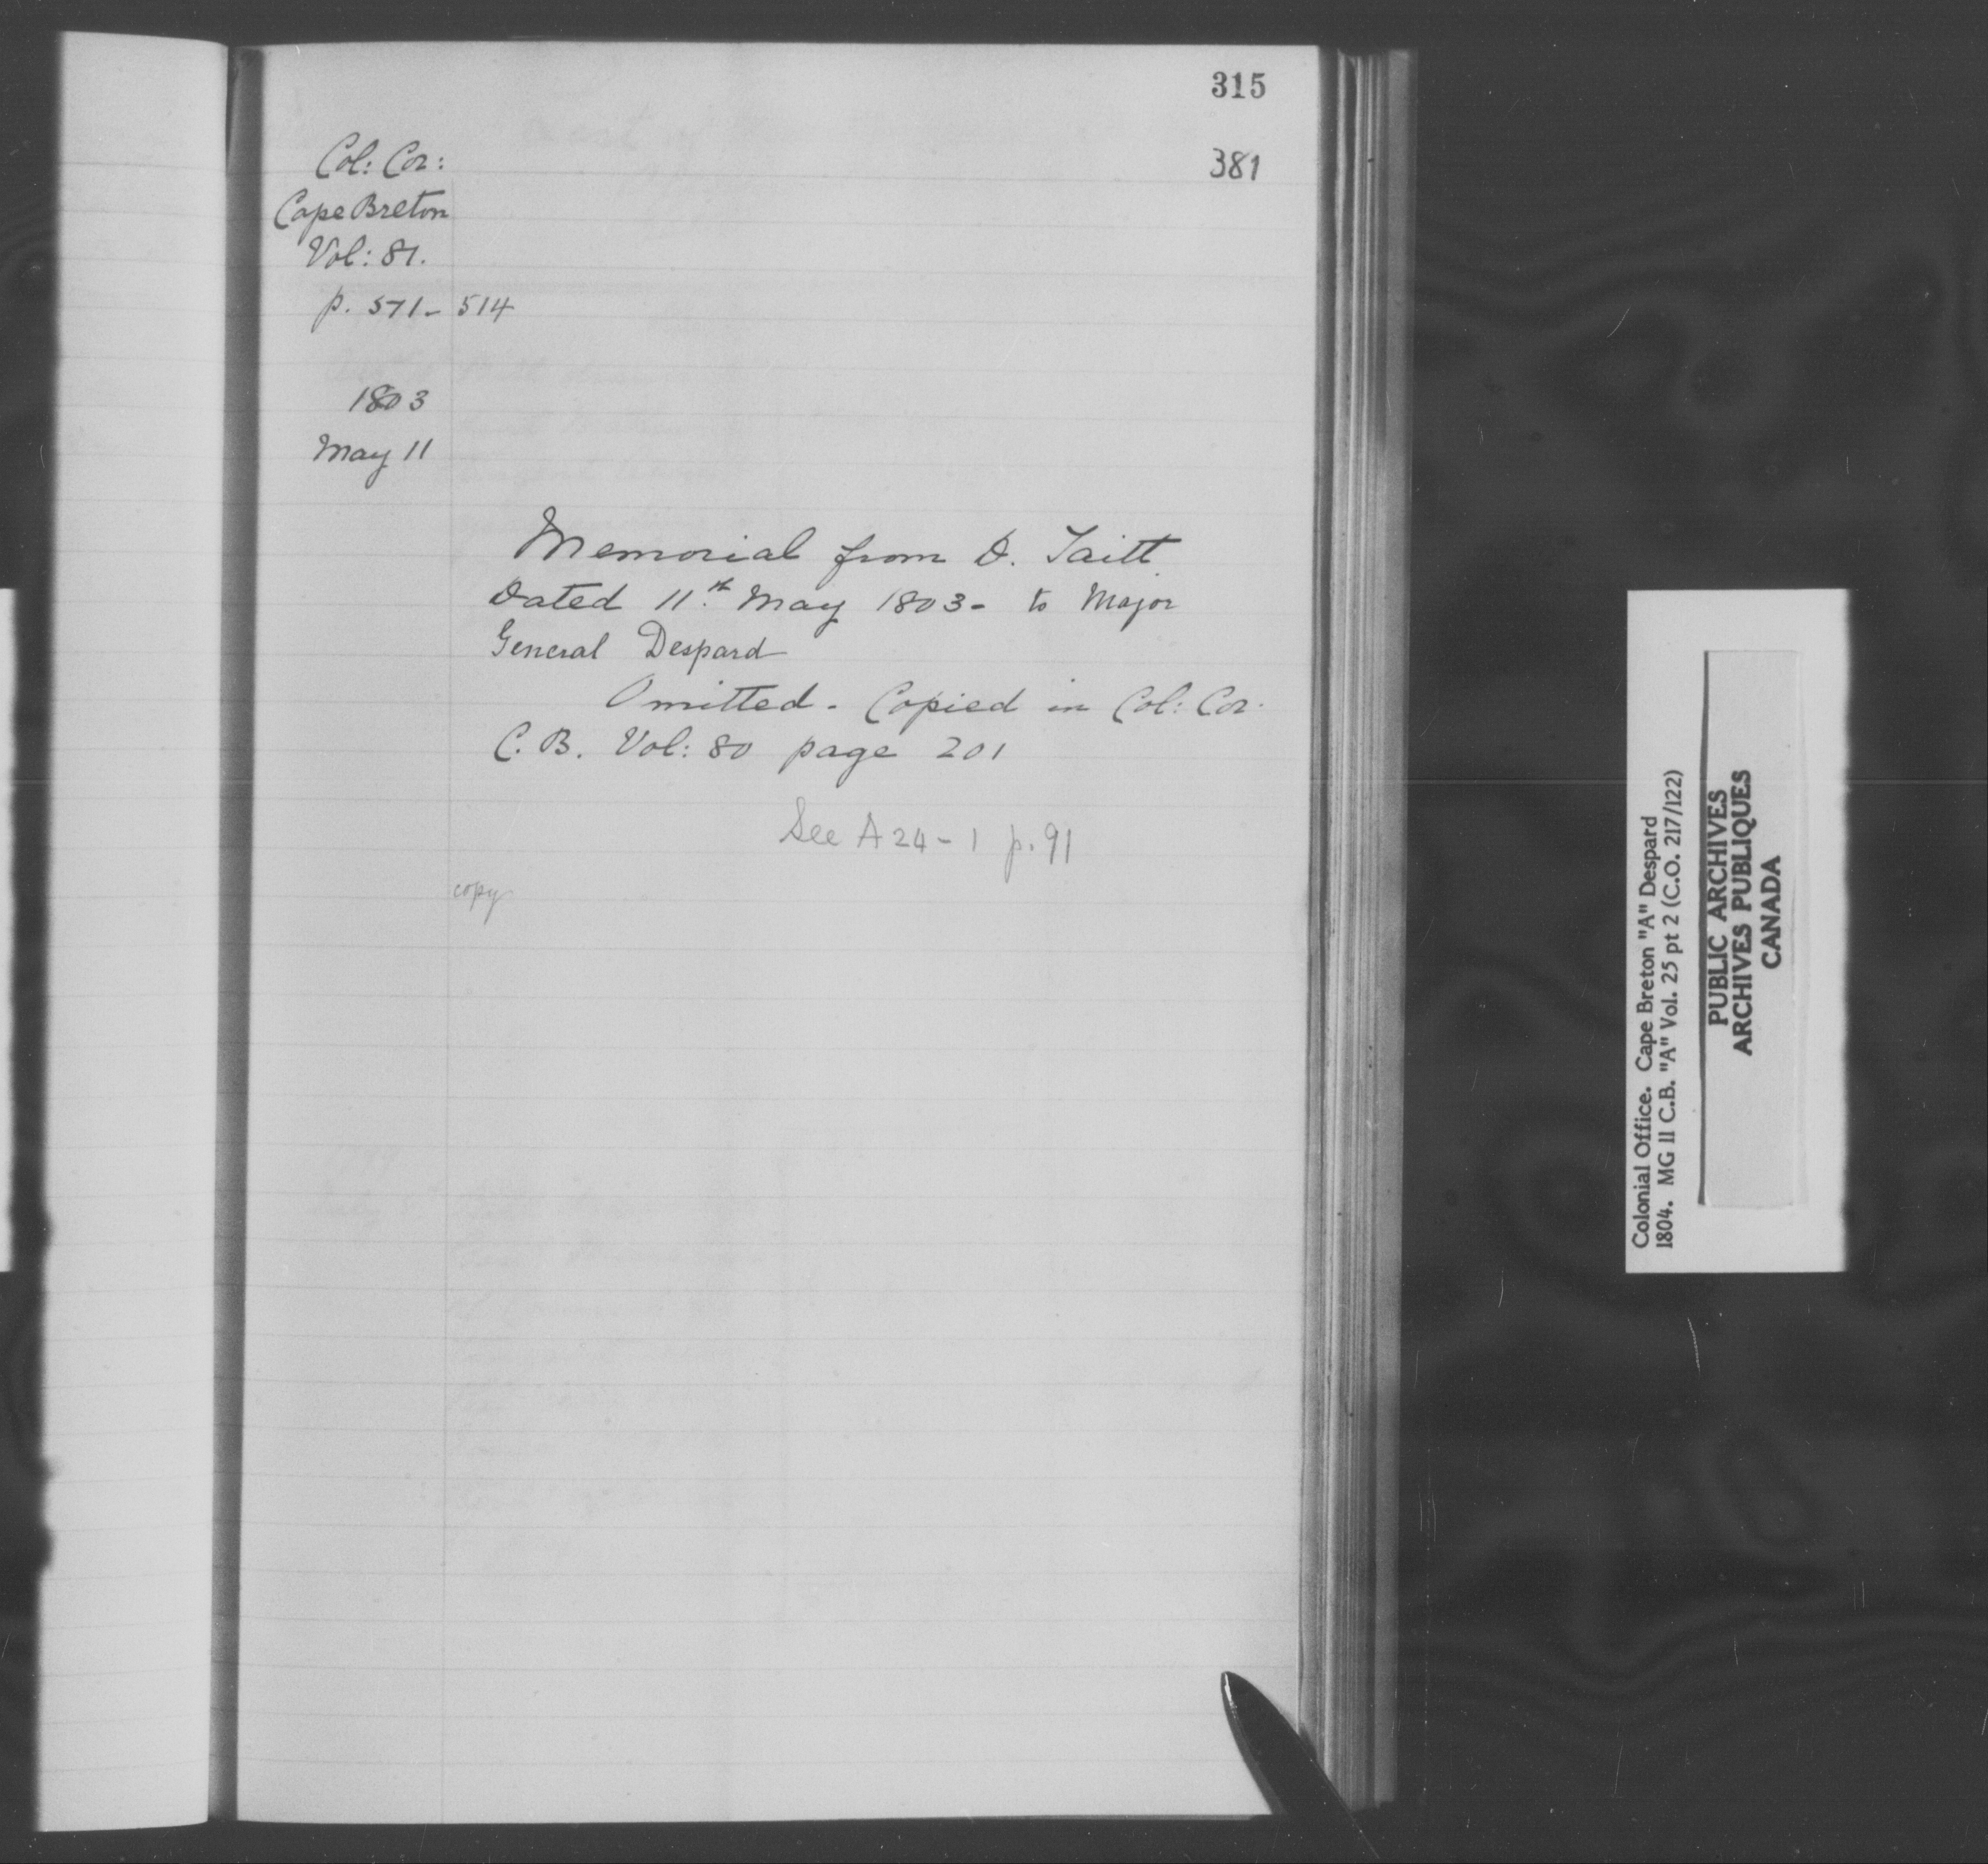 315
381
Col: Cor:
Cape Breton
Vol: 81.
p. 571 - 514
1803
May 11
Memorial from D. Taitt.
Dated 11th May 1803 - to Major
General Despard
Omitted. Copied in Col: Cor.
C. B. Vol: 80 page 201
See A 24 - 1 p. 91
copy
Colonial Office. Cape Breton "A" Despard
1804. MG 11 C.B. "A" Vol. 25 pt 2 (C.O. 217/122)
PUBLIC ARCHIVES
ARCHIVES PUBLIQUES
CANADA